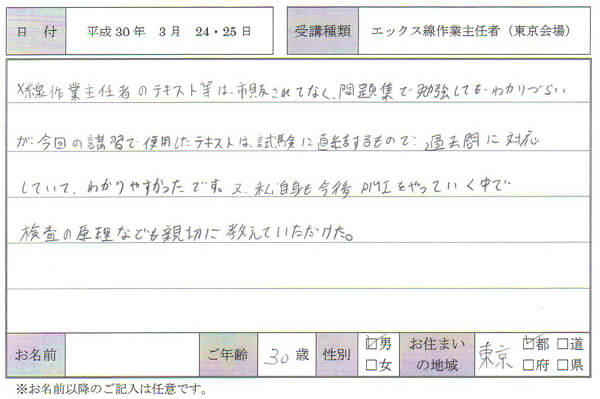 日 付 平成30年 3月 24・25日 受講種類 エックス線作業主任者(東京会場)
X線作業主任者のテキスト等は、市販されてなく、問題集で勉強しても、わかりづらい
が、今回の講習で使用したテキストは、試験に直結するもので、過去問に対応
していて、わかりやすかったです。又、私自身も今後PMIをやっていく中で
検査の原理なども親切に教えていただけた。
お名前 ご年齢 30歳 性別 ☑男 □女 お住まいの地域 東京 ☑都 □道 □府 □県
※お名前以降のご記入は任意です。